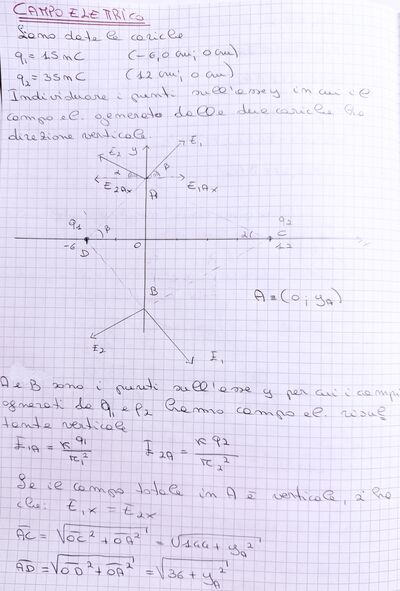 CAMPO ELETTRICO
Siano date le cariche
q₁ = 15 nC (-6,0 cm; 0 cm)
q₂ = 35 nC (12 cm; 0 cm)
Individuare i punti sull'asse y in cui il
campo el. generato dalle due cariche ha
direzione verticale.
E₂ y E₁
α β
E₂Ax E₁Ax
A
q₁ q₂
β α C
-6 O 12
D
B
A = (0; yA)
E₂ E₁
A e B sono i punti sull'asse y per cui i campi
generati da q₁ e q₂ hanno campo el. risul
tante verticale
E₁A = k q₁ / r₁² E₂A = k q₂ / r₂²
Se il campo totale in A è verticale, si ha
che: E₁x = E₂x
AC = √OC² + OA² = √144 + yA²
AD = √OD² + OA² = √36 + yA²